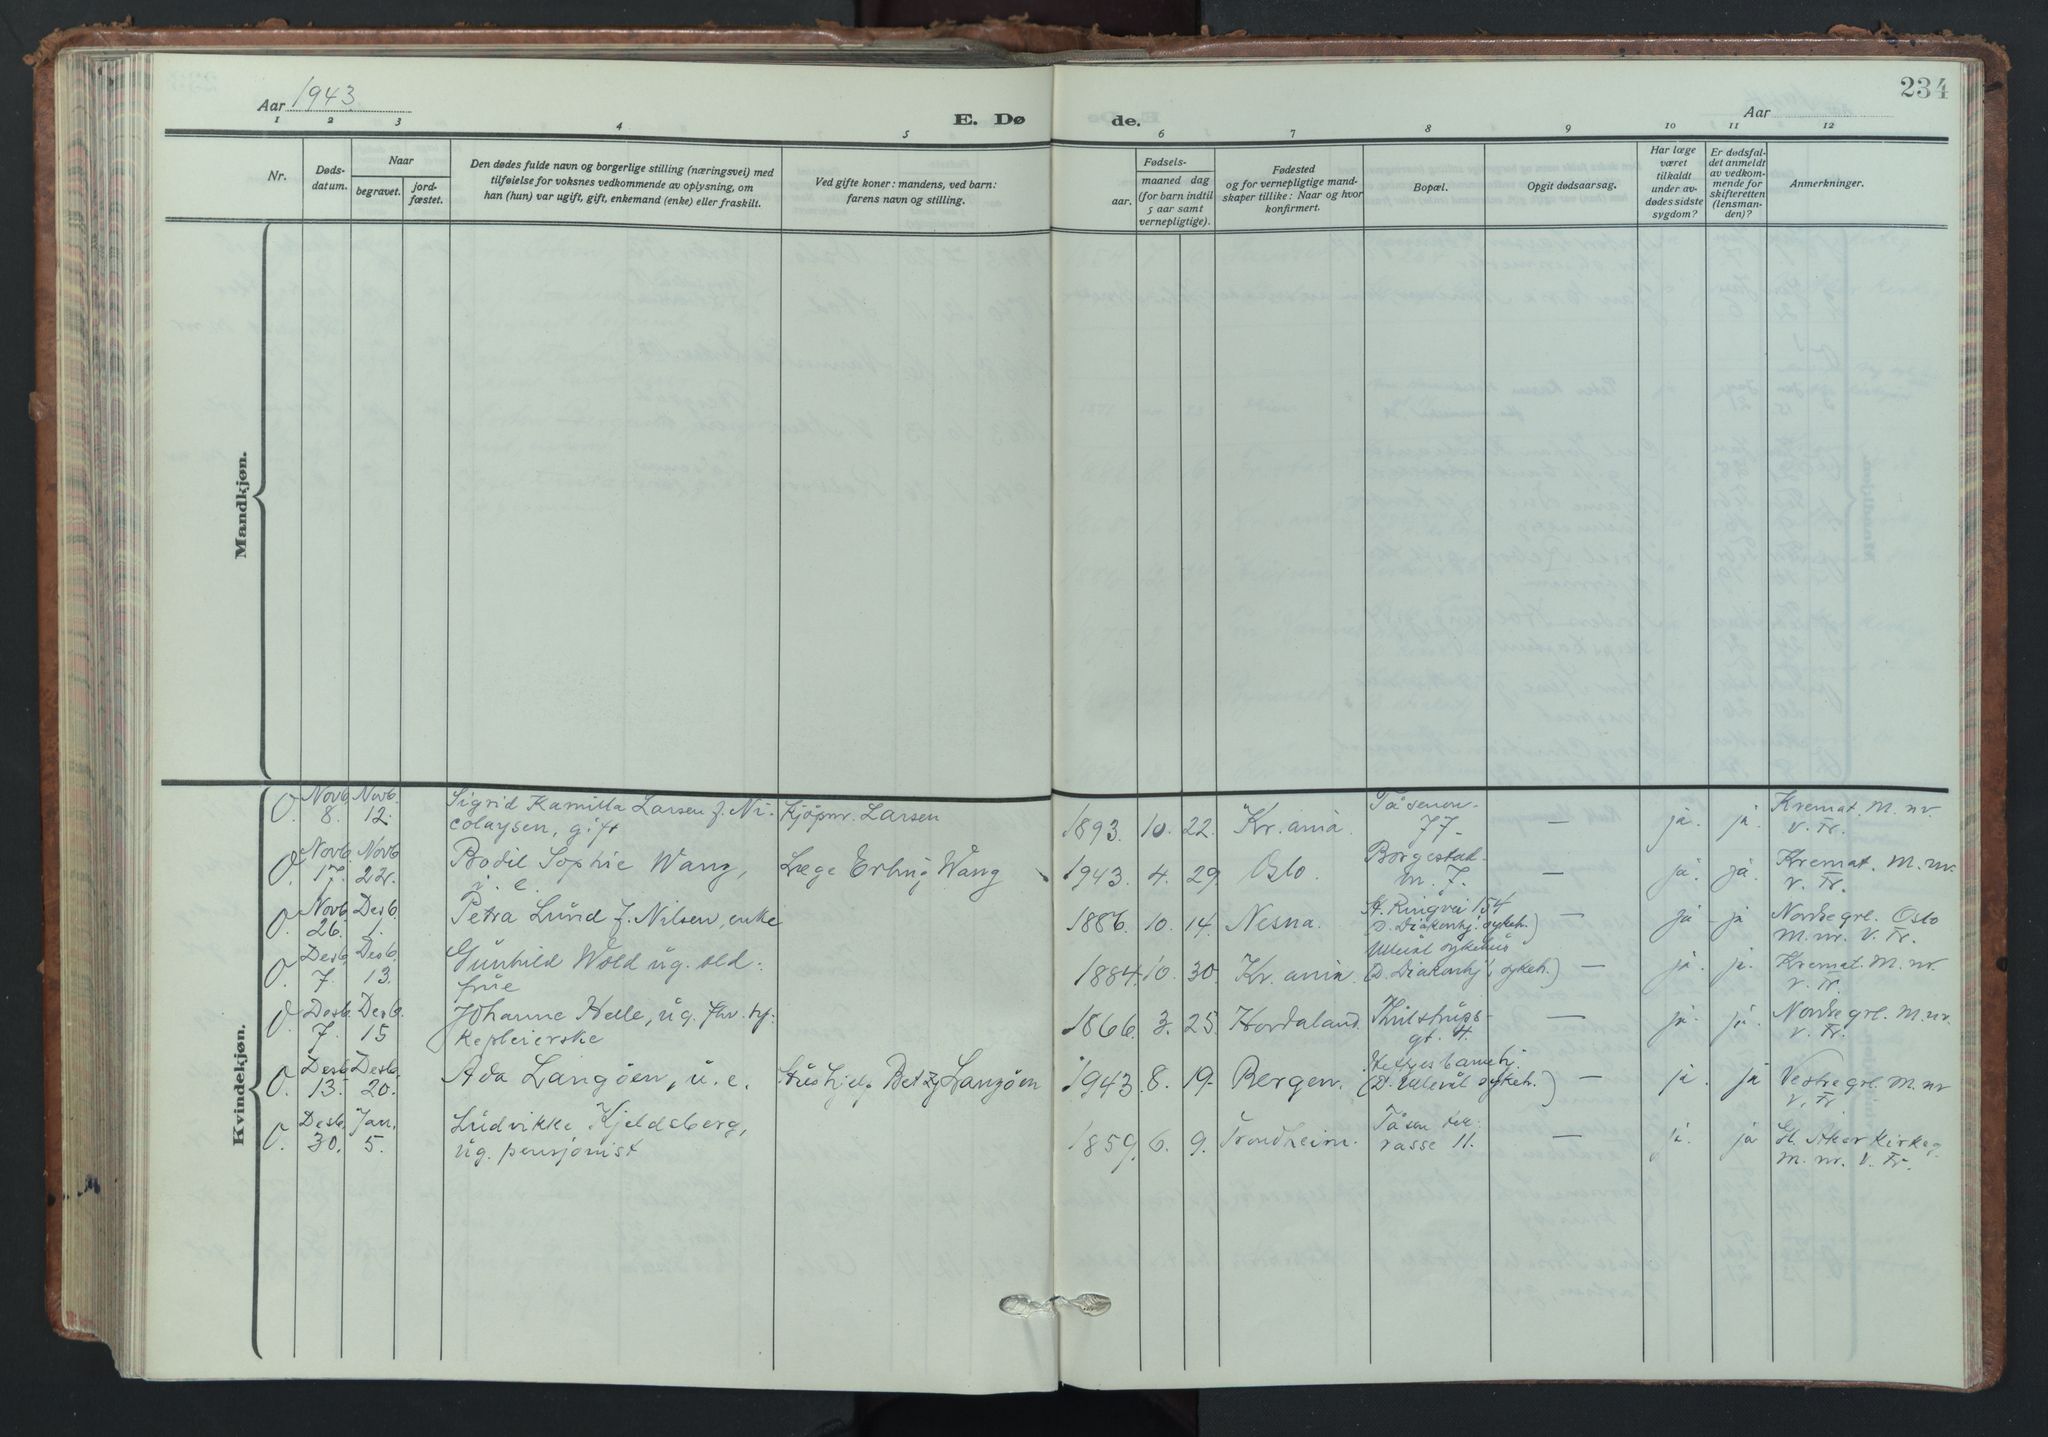 Aar 1943
E. Dø
de.
Aar
234
1 2 3 4 5 6 7 8 9 10 11 12
Nr.
Døds-
datum.
Naar
begravet.
jord-
fæstet.
Den dødes fulde navn og borgerlige stilling (næringsvei) med
tilføielse for voksnes vedkommende av oplysning, om
han (hun) var ugift, gift, enkemand (enke) eller fraskilt.
Ved gifte koner: mandens, ved barn:
farens navn og stilling.
Fødsels-
aar.
maaned dag
(for barn indtil
5 aar samt
vernepligtige).
Fødested
og for vernepligtige mand-
skaper tillike: Naar og hvor
konfirmert.
Bopæl.
Opgit dødsaarsag.
Har læge
været
tilkaldt
under av-
dødes sidste
sygdom?
Er dødsfal-
det anmeldt
av vedkom-
mende for
skifteretten
(lensman-
den)?
Anmerkninger.
Mandkjøn.
Kvindekjøn.
O. Novb. 8. Novb. 12. Sigrid Kamilla Larsen f. Ni-
colaysen, gift
Kjöpm. Larsen 1893. 10. 22. Kr.ania. Tåsenvn.
77. — ja. ja. Kremat. M. nr.
V. Fr.
O. Novb. 17. Novb. 22. Bodil Sophie Wang,
u. e.
Læge Erling Wang 1943. 4. 29. Oslo. Borgestad-
vn. 7. — ja. ja. Kremat. M. nr.
V. Fr.
O. Novb. 26. Desb. 1. Petra Lund f. Nilsen, enke 1886. 10. 14. Nesna. St. Ringvei 154
(D. Diakonhj. sykeh.) — ja ja Nordre grl. Oslo
M. nr. V. Fr.
O. Desb. 7. Desb. 13. Gunhild Wold ug. old-
frue
1884. 10. 30. Kr. ania. Ullevål sykehus
(D. Diakonhj. sykeh.) — ja. ja. Kremat. M. nr.
V. Fr.
O. Desb. 7. Desb. 15 Johanne Helle, ug. fhv. sy-
kepleierske
1866. 3. 25. Hordaland. Thulstrups-
gt. 4. — ja. ja. Nordre grl. M. nr.
V. Fr.
O. Desb. 13. Desb. 20. Ada Langöen, u. e. Hushjelp Betzy Langöen 1943. 8. 19. Bergen. (D. Ullevål sykeh.) — ja. ja Vestre grl. M. nr
V. Fr.
O. Desb. 30. Jan. 5. Ludvikke Kjeldsberg,
ug. pensjonist
1859. 6. 9. Trondheim. Tåsen ter-
rasse 11. — ja. ja Gl. Aker Kirkeg.
M. nr. V. Fr.